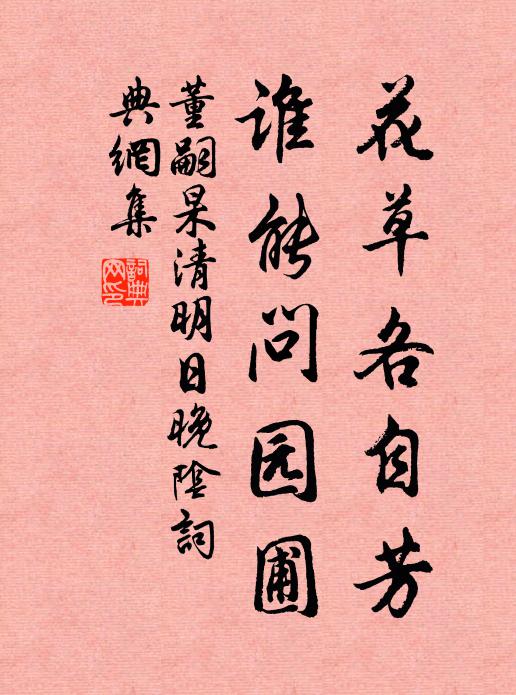 花草各自芳
谁能问园圃
董嗣杲清明日晚陰詞
典網集
詞典
网印